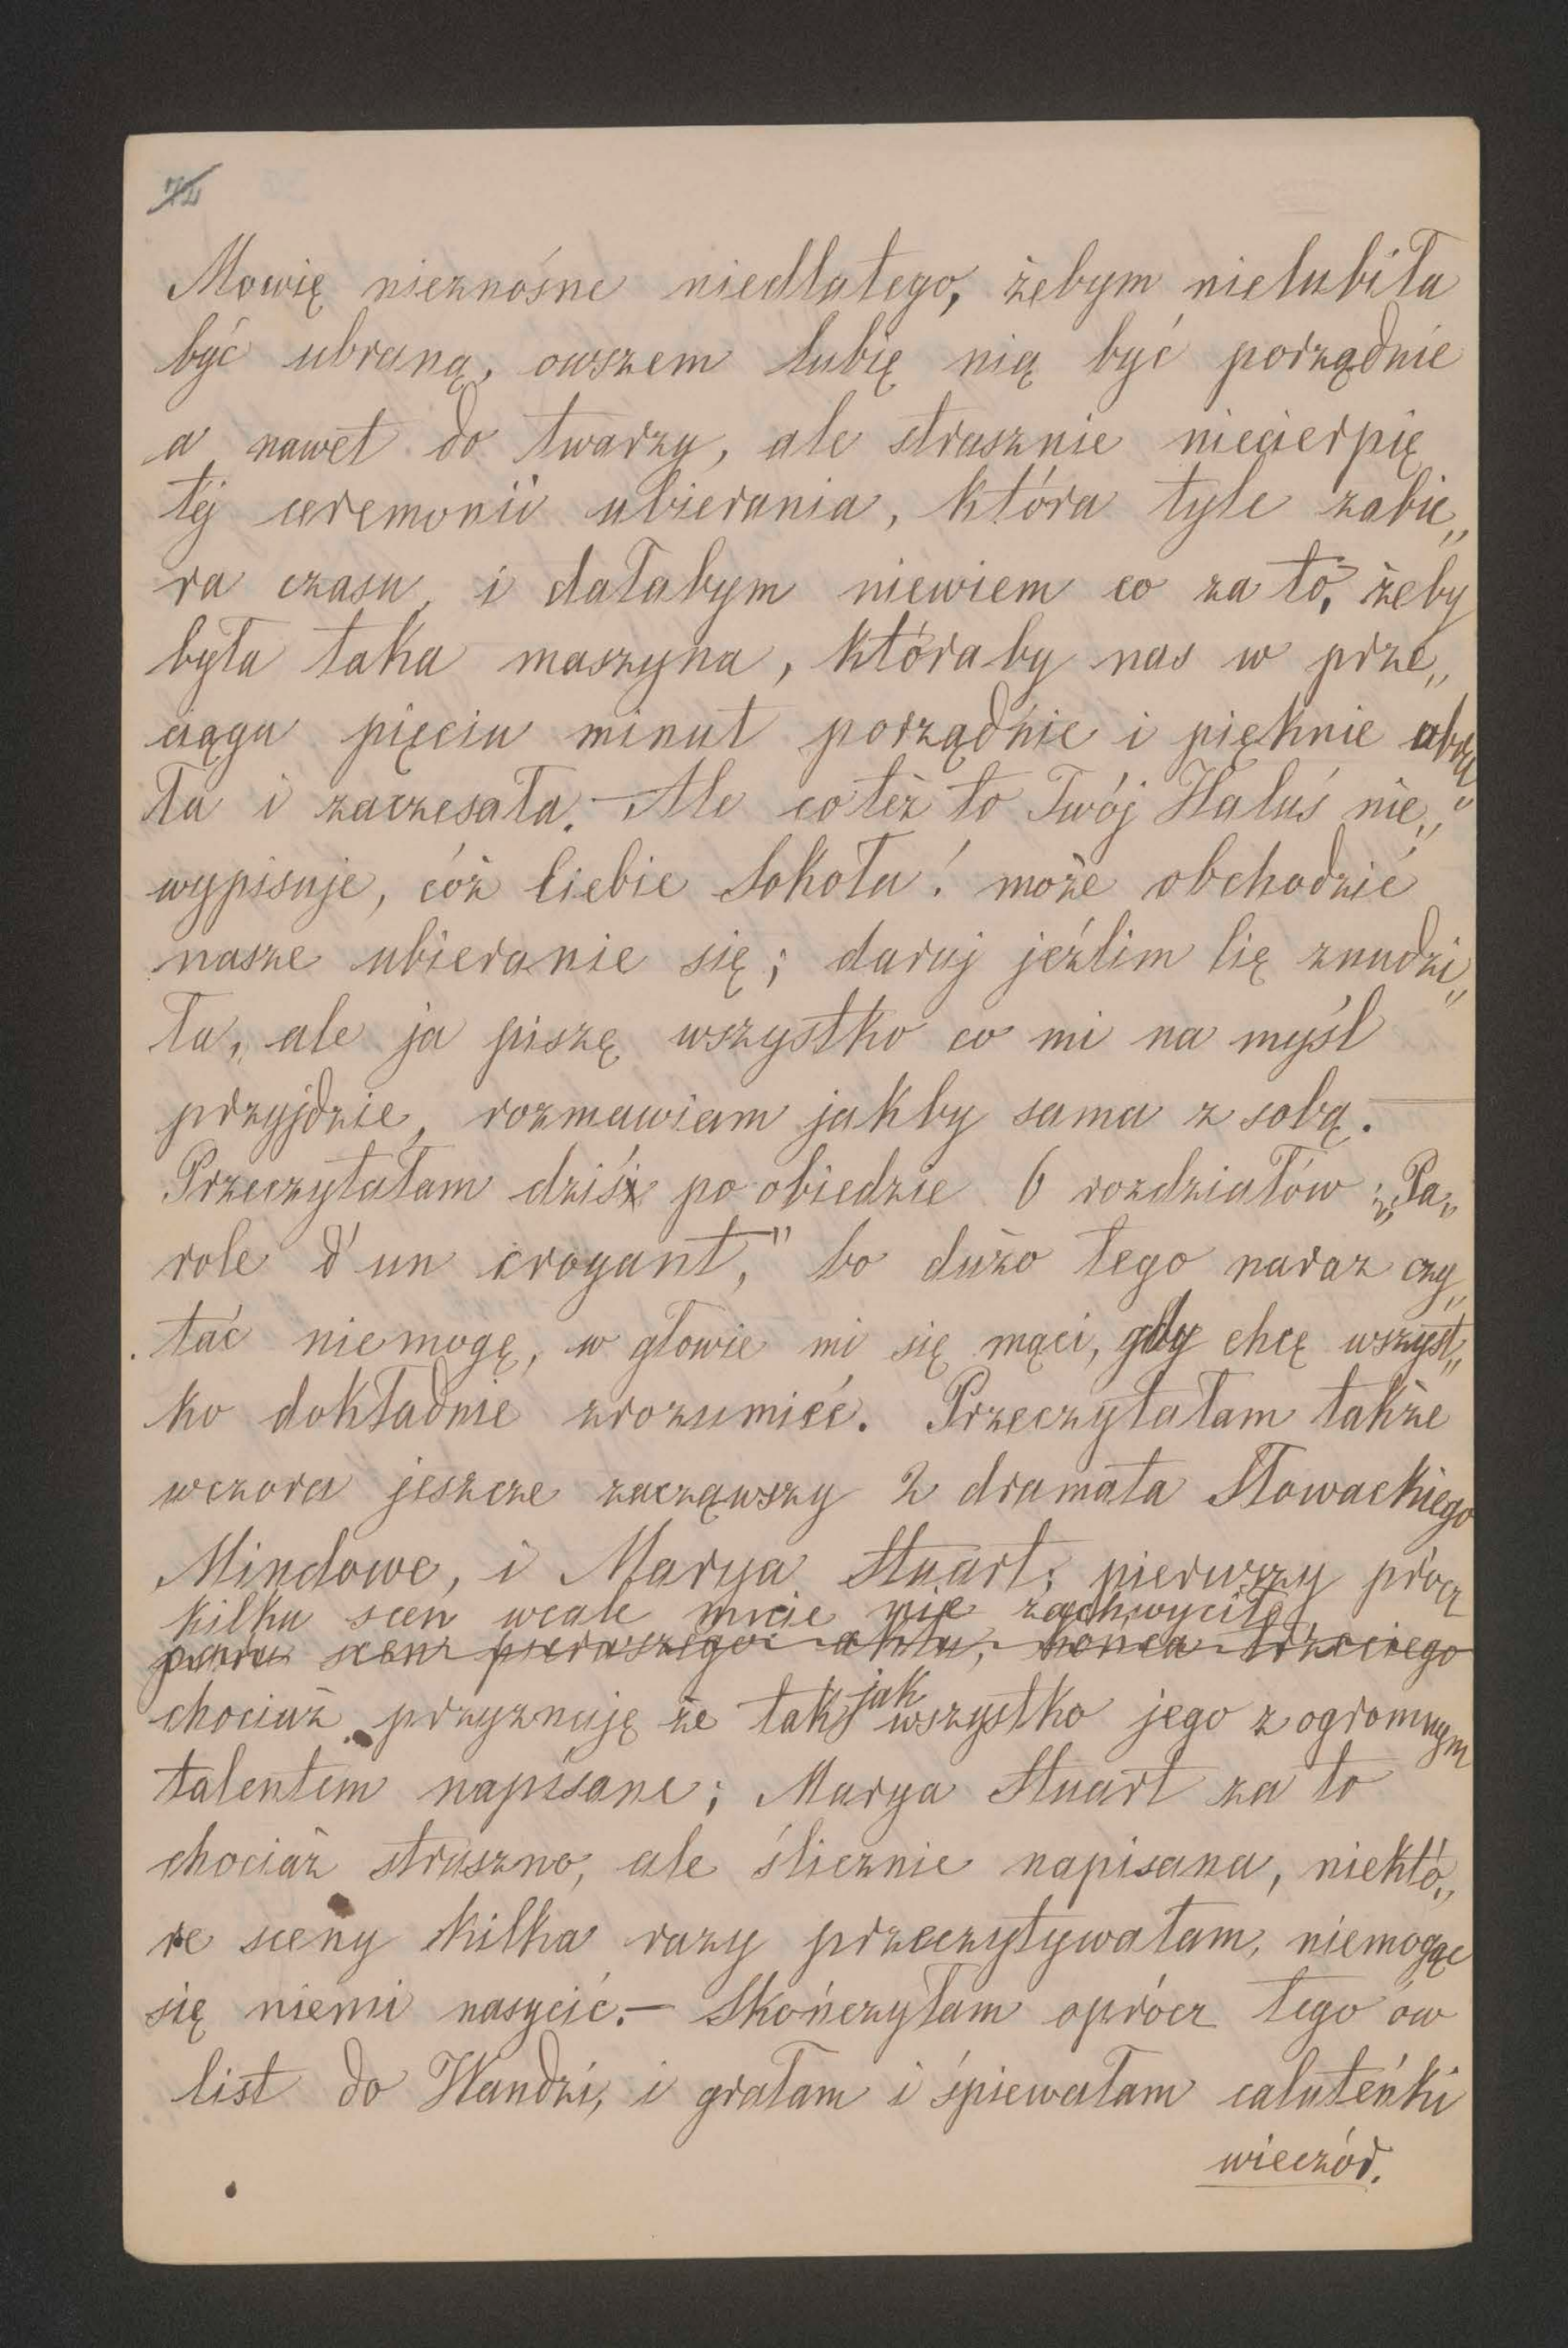 72
Mowię nieznośne niedlatego, żebym nielubiła
być ubraną, owszem lubię nią być porządnie
a nawet do twarzy, ale strasznie niecierpię
tej ceremonii ubierania, która tyle zabie„
ra czasu, i dałabym niewiem co za to, żeby
była taka maszyna, któraby nas w prze„
ciągu pięciu minut porządnie i pięknie ubra„
ła i zaczesała. — Ale co też to Twój Haluś nie„
wypisuje, cóż Ciebie Sokoła! może obchodzić
nasze ubieranie się; daruj jeźlim Cię znudzi„
ła, ale ja piszę wszystko co mi na myśl
przyjdzie, rozmawiam jakby sama z sobą. —
Przeczytałam dziś po obiedzie 6 rozdziałów „Pa„
role d'un croyant," bo dużo tego naraz czy„
tać niemogę, w głowie mi się mąci, gdy chcę wszyst„
ko dokładnie zrozumieć. Przeczytałam także
wczora jeszcze zacząwszy 2 dramata Słowackiego
Mindowe, i Marya Stuart; pierwszy prócz
kilku scen wcale mnie nie zachwycił
paru scen pierwszego aktu, końca trzeciego
chociaż przyznaję że tak jak wszystko jego z ogromnym
talentem napisane; Marya Stuart za to
chociaż straszno, ale ślicznie napisana, niektó„
re sceny kilka razy przeczytywałam, niemogąc
się niemi nasycić. — Skończyłam oprócz tego ów
list do Wandzi, i grałam i śpiewałam caluteńki
wieczór.